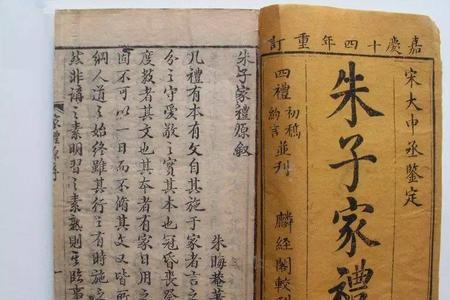 嘉慶十四年重訂
宋大中丞鑒定
朱子家禮
四禮初稿約言並刊
麟經閣較刊
朱子家禮原叙
朱晦菴著
凡禮有本有文自其施於家者言之
分之守愛敬之實其本也冠昏喪祭
度數者其文也其本者有家日用之
固不可以一日而不脩其文又皆所
綱人道之始終雖其行之有時施之
然非講之素明習之素熟則其臨事
家禮原序